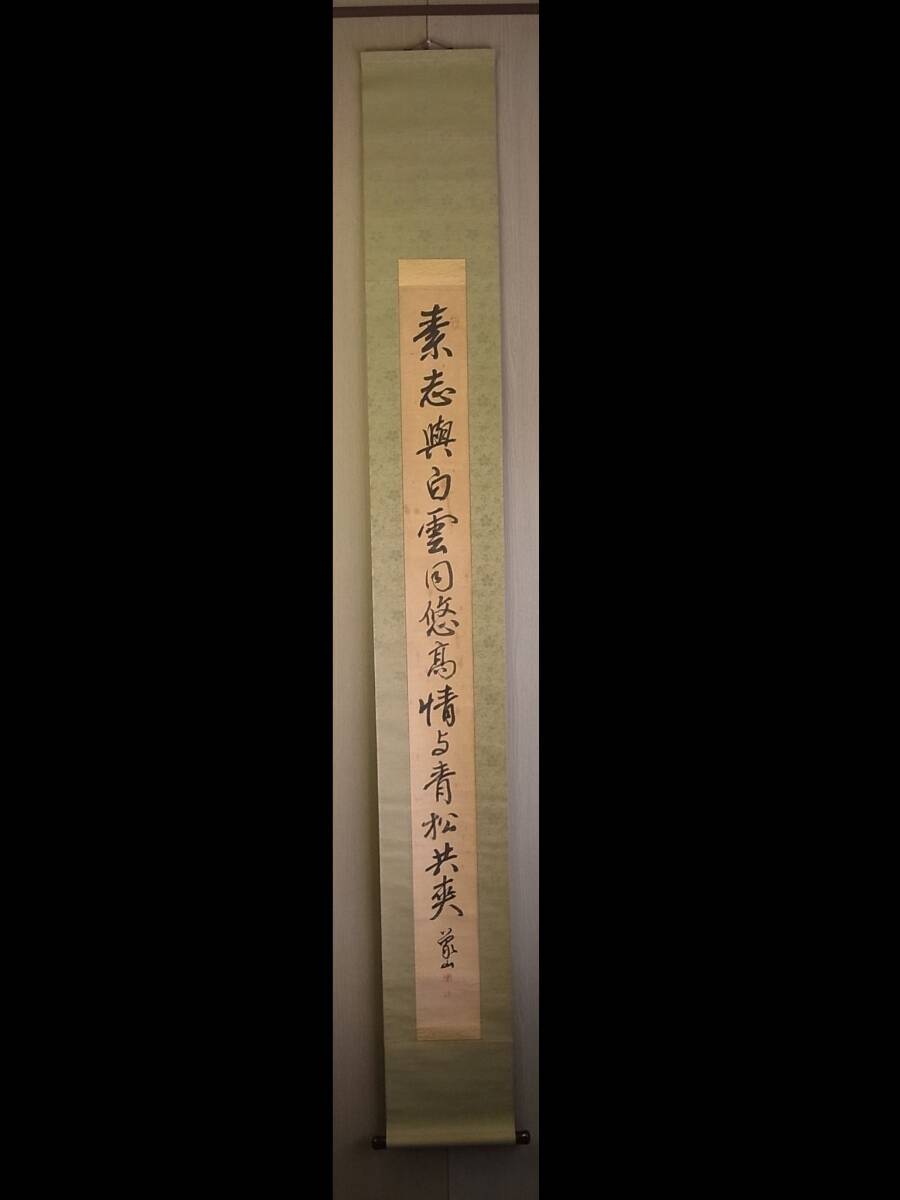 素志與白雲同悠高情与青松共爽